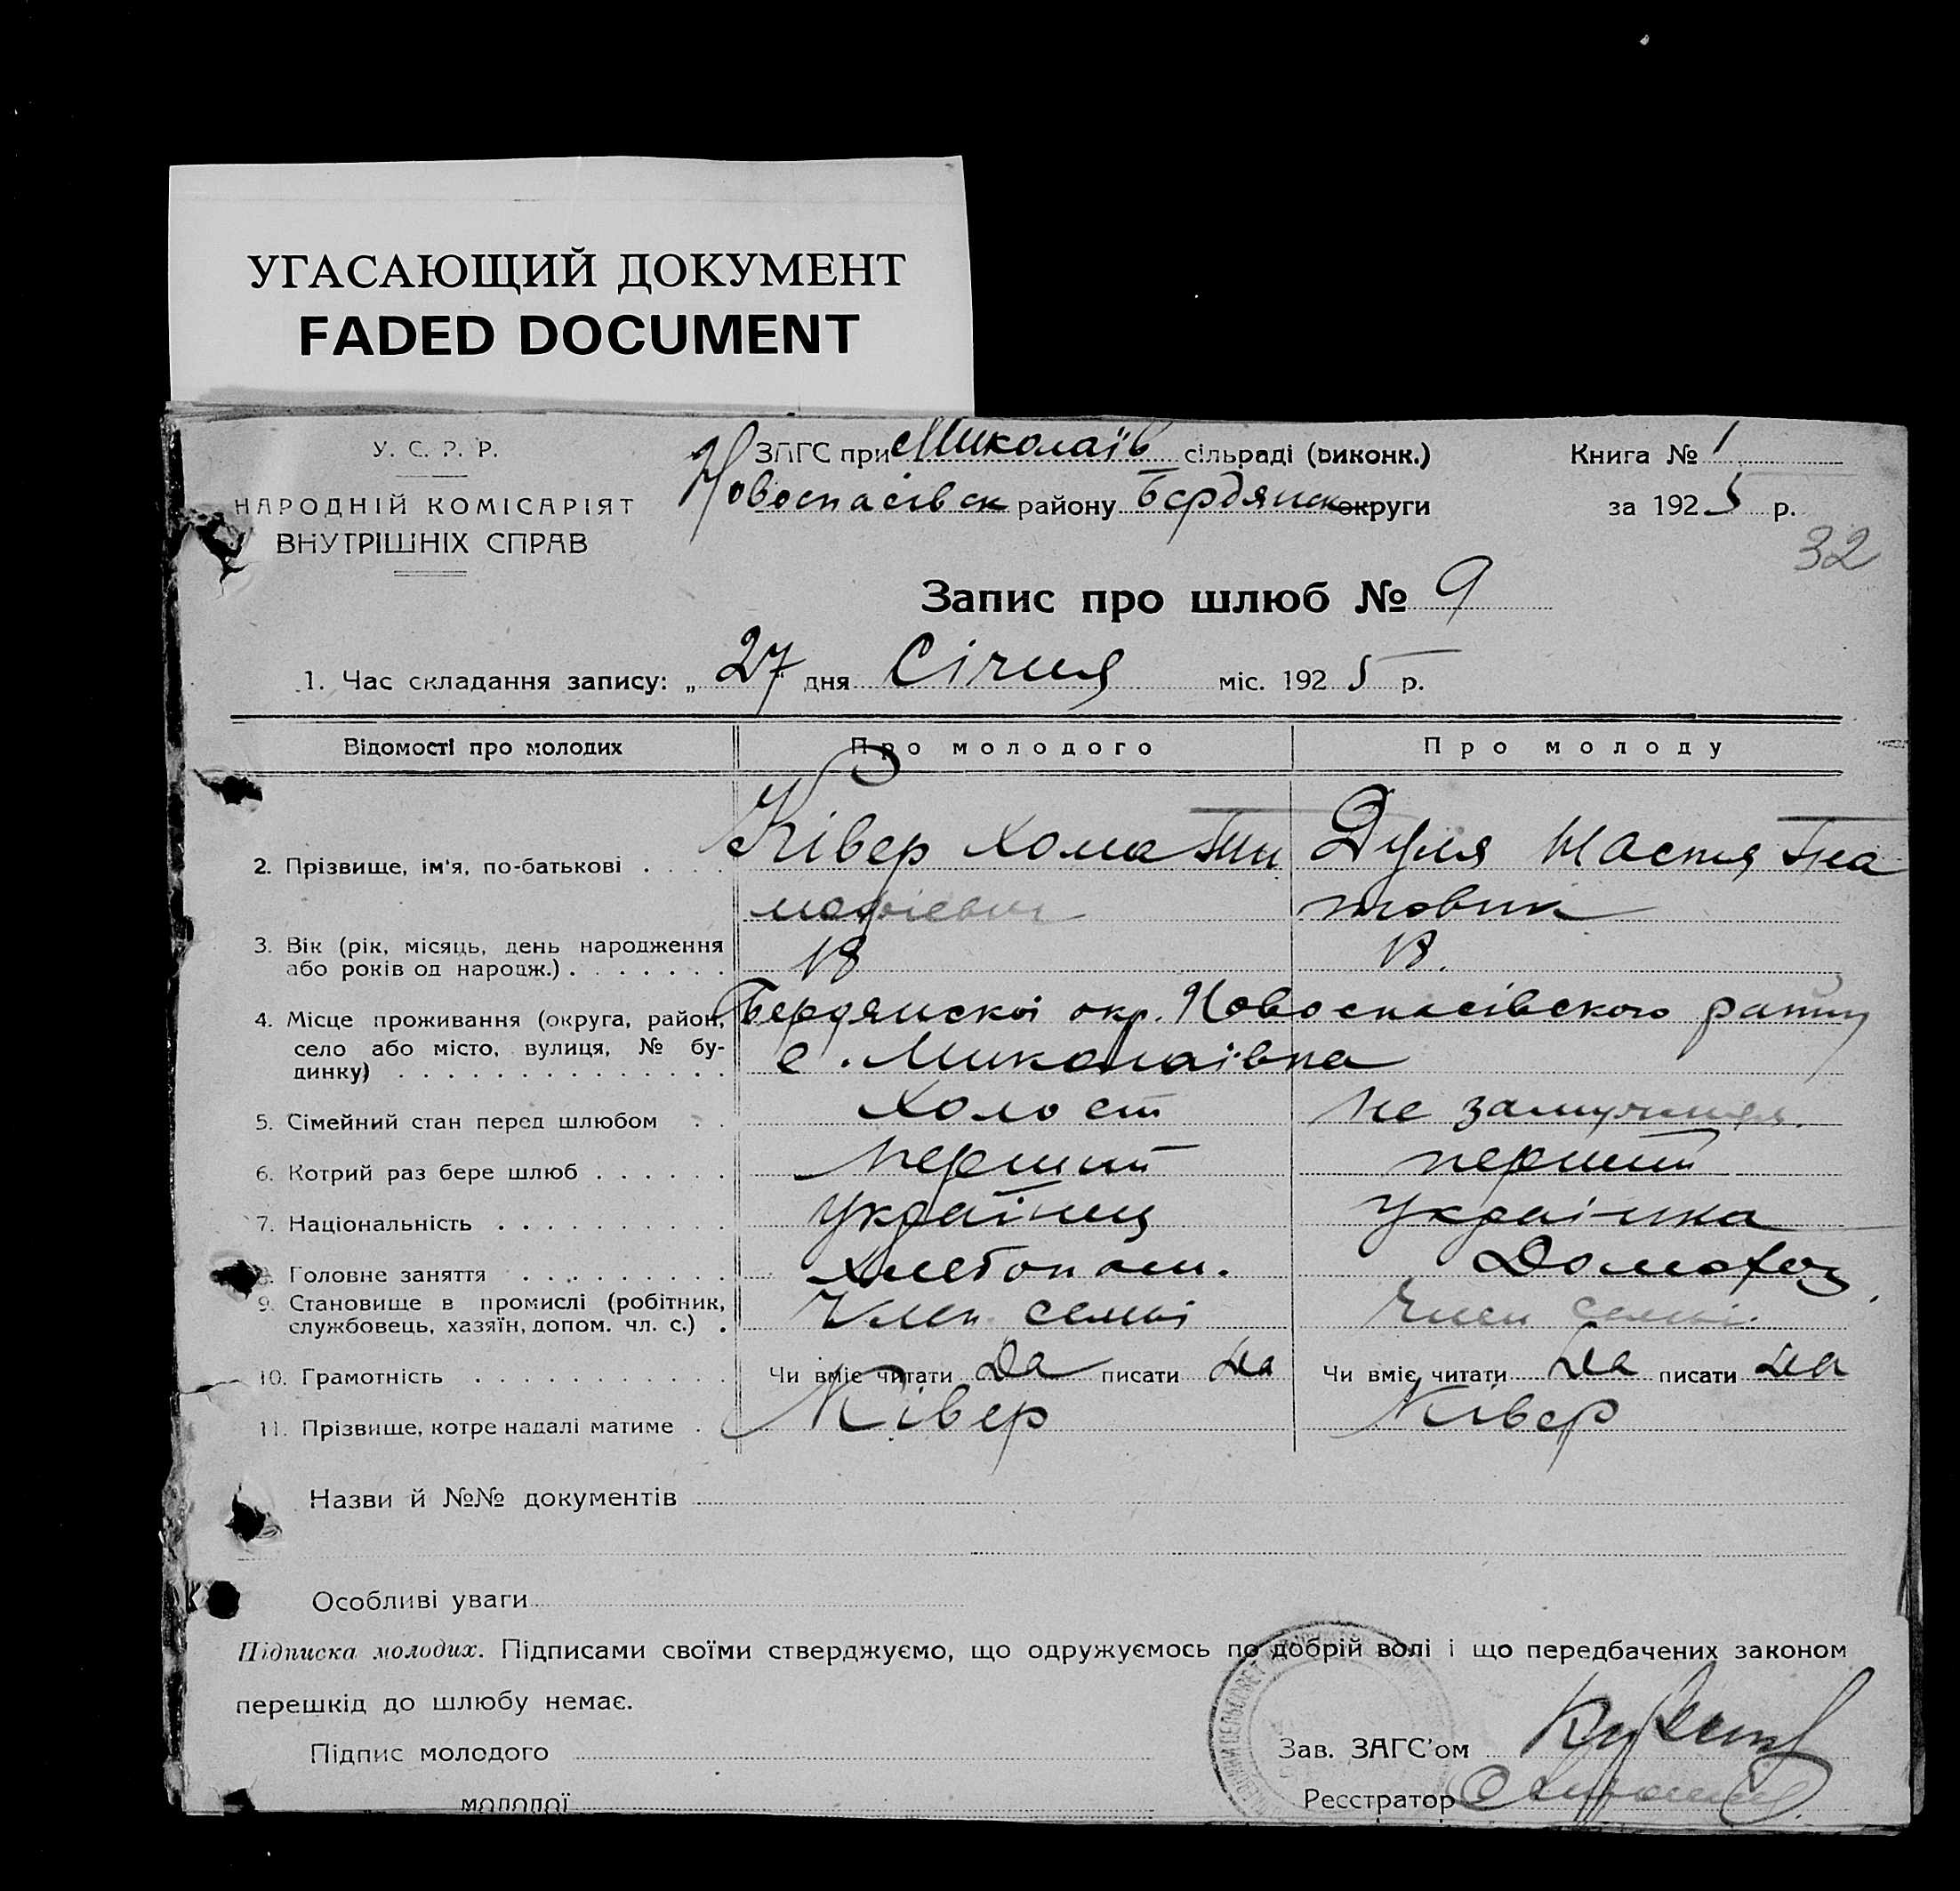 УГАСАЮЩИЙ ДОКУМЕНТ
FADED DOCUMENT
У. С. Р. Р.
НАРОДНІЙ КОМІСАРІЯТ
ВНУТРІШНІХ СПРАВ
ЗАГС при Миколаїв сільраді (виконк.)
Новоспасівск району Бердянск округи
Книга № 1
за 1925 р.
32
Запис про шлюб № 9
1. Час складання запису: „27" дня Січня міс. 1925 р.
Відомості про молодих Про молодого Про молоду
2. Прізвище, ім'я, по-батькові Ківер Хома Тим Дуля Настя Гна
мофіевич товна
3. Вік (рік, місяць, день народження 18 18.
або років од народж.)
4. Місце проживання (округа, район, Бердянскоі окр. Новоспасівского району
село або місто, вулиця, № бу- с. Миколаівка
динку)
5. Сімейний стан перед шлюбом Холост не замужняя.
6. Котрий раз бере шлюб перший перший
7. Національність українец українка
8. Головне заняття хлебопаш. Домохоз
9. Становище в промислі (робітник, Член семьі Член семьі.
службовець, хазяїн, допом. чл. с.)
10. Грамотність Чи вміє читати Да писати Да Чи вміє читати Да писати Да
11. Прізвище, котре надалі матиме Ківер Ківер
Назви й №№ документів
Особливі уваги
Підписка молодих. Підписами своїми стверджуємо, що одружуємось по добрій волі і що передбачених законом
перешкід до шлюбу немає.
Підпис молодого Зав. ЗАГС'ом
молодої Реєстратор